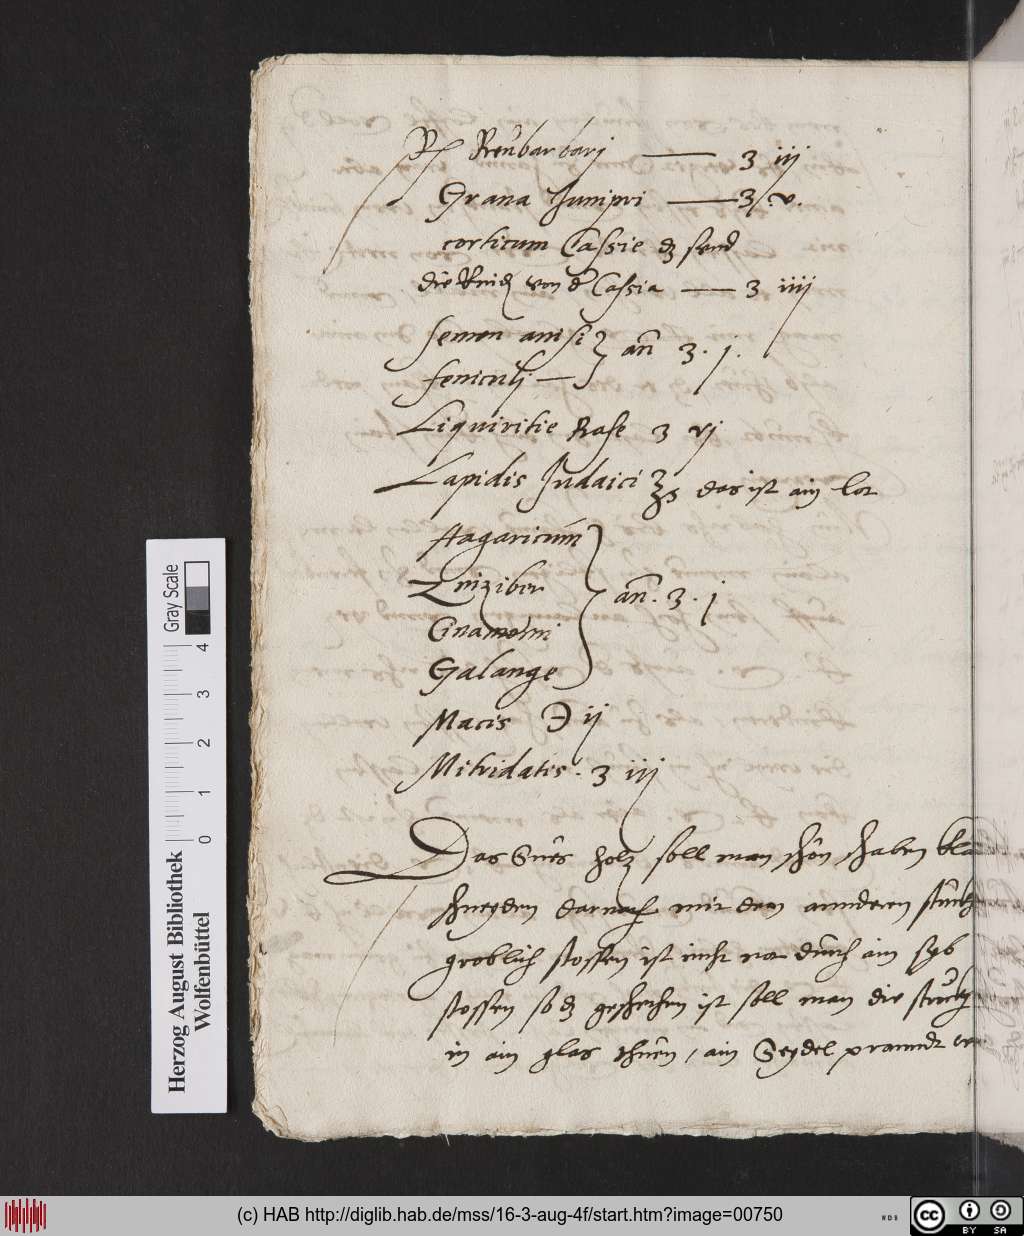 Rp Reubarbarj —— ʒ iij
Grana Junipri —— ʒ. v.
corticum Cassie dz send
die Rindz von d Cassia —— ʒ iiij
semen anisi } an̄ ʒ. j.
feniculj —
Liquiritie Rase ʒ vj
Lapidis Judaici ʒs das ist ain lot
Aagaricum
Zinziber } an̄. ʒ. j
Cinamomi
Galange
Macis ℈ ij
Mitridatis. ʒ iij
Das Sues holz soll man schön schaben
schneyden darnach mit den anndern stuckh
groblich stossen ist nicht durch ain syb
stossen so dz geschechen ist soll man die stuckh
in ain glas thuen, ain Seydel pranndt
Herzog August Bibliothek
Wolfenbüttel
0 1 2 3 4
Gray Scale
(c) HAB http://diglib.hab.de/mss/16-3-aug-4f/start.htm?image=00750
WDB
cc BY SA